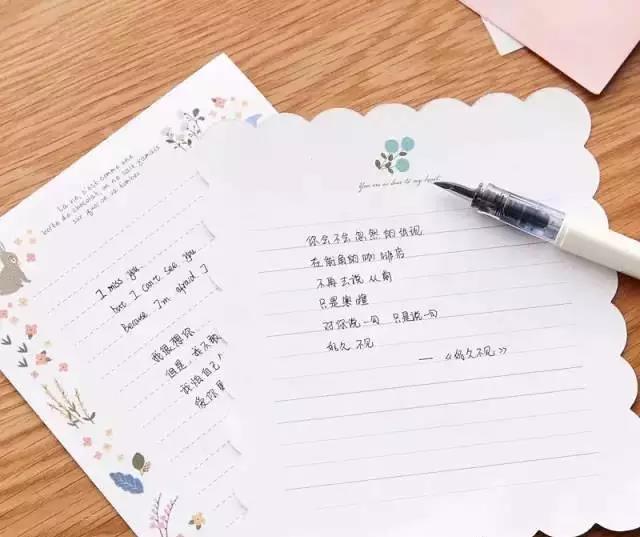 La vie, c'est comme une
boîte de chocolat, on ne sait jamais
sur quoi on va tomber
I miss you
but I can't see you
because I'm afraid I
我很想你
但是,我不敢
我怕自己
爱你
You are so dear to my heart
你会不会忽然的出现
在街角的咖啡店
不再去说从前
只是寒暄
对你说一句 只是说一句
好久不见
——《好久不见》